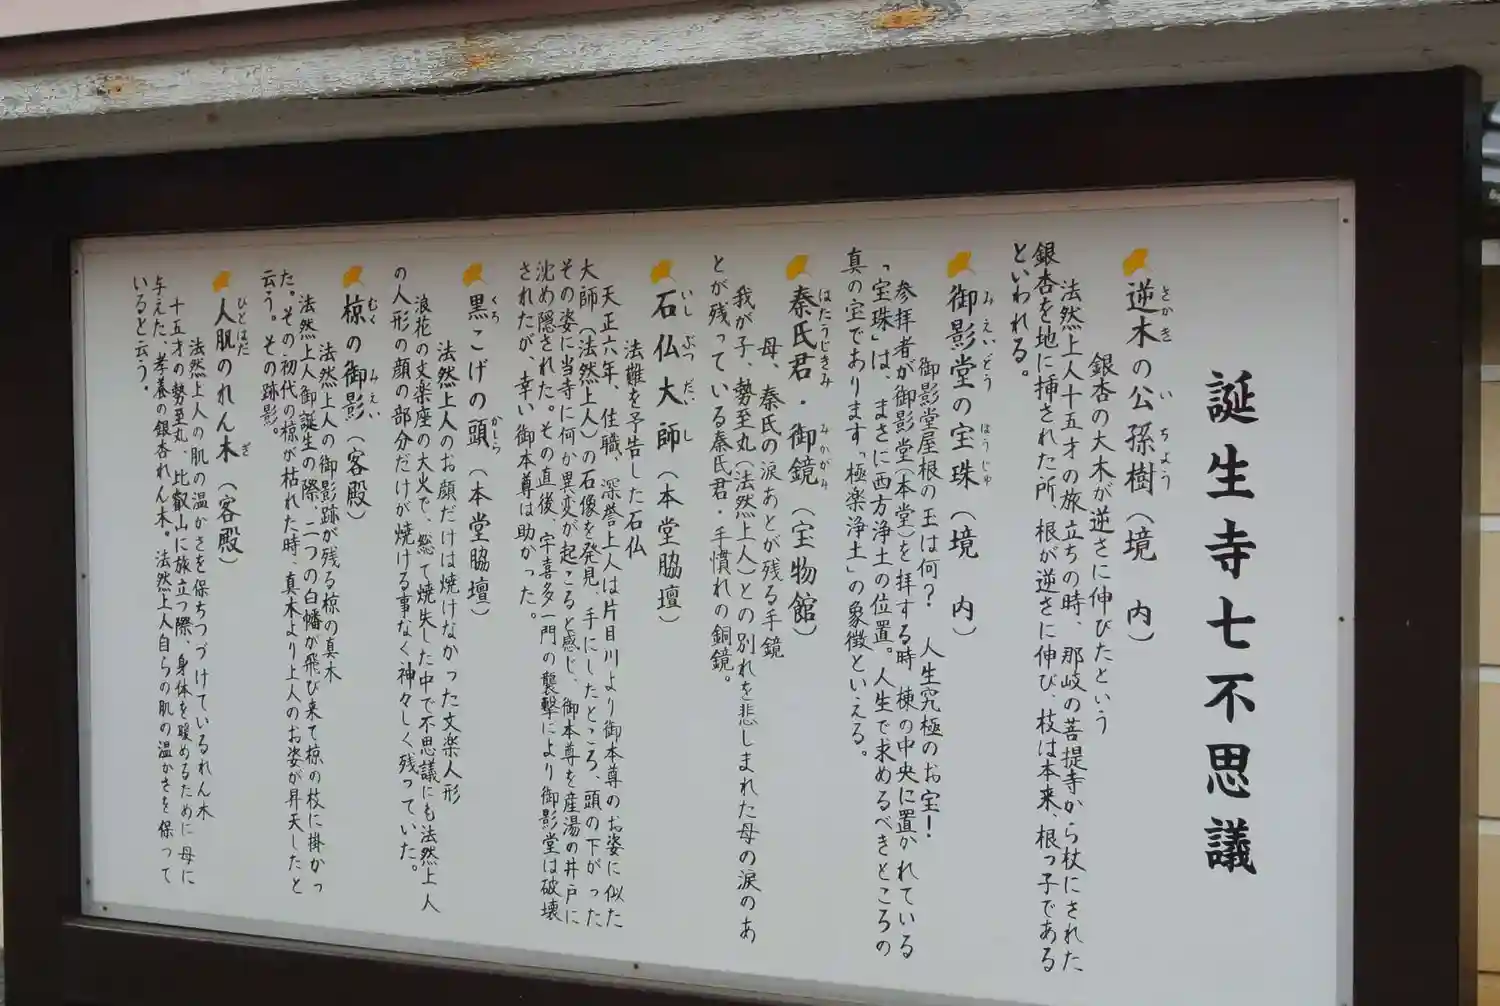 誕生寺七不思議
逆木の公孫樹（境　内）
さかき　い　ちょう
銀杏の大木が逆さに伸びたという
法然上人十五才の旅立ちの時、那岐の菩提寺から杖にされた
銀杏を地に挿された所、根が逆さに伸び、枝は本来、根っ子である
といわれる。
御影堂の宝珠（境　内）
みえいどう　ほうじゅ
御影堂屋根の王は何？　人生究極のお宝！
参拝者が御影堂（本堂）を拝する時、棟の中央に置かれている
「宝珠」は、まさに西方浄土の位置。人生で求めるべきところの
真の宝であります「極楽浄土」の象徴といえる。
秦氏君・御鏡（宝物館）
はたうじきみ　みかがみ
母、秦氏の涙あとが残る手鏡
我が子、勢至丸（法然上人）との別れを悲しまれた母の涙のあ
とが残っている秦氏君・手慣れの銅鏡。
石仏大師（本堂脇壇）
いしぶつだいし
法難を予告した石仏
天正六年、住職、深誉上人は片目川より御本尊のお姿に似た
大師（法然上人）の石像を発見、手にしたところ、頭の下がった
その姿に当寺に何か異変が起こると感じ、御本尊を産湯の井戸に
沈め隠された。その直後、宇喜多一門の襲撃により御影堂は破壊
されたが、幸い御本尊は助かった。
黒こげの頭（本堂脇壇）
くろ　かしら
法然上人のお顔だけは焼けなかった文楽人形
浪花の文楽座の大火で、総て焼失した中で不思議にも法然上人
の人形の顔の部分だけが焼ける事なく神々しく残っていた。
椋の御影（客殿）
むく　みえい
法然上人の御影跡が残る椋の真木
法然上人御誕生の際、二つの白幡が飛び来て椋の枝に掛かっ
た。その初代の椋が枯れた時、真木より上人のお姿が昇天したと
云う。その跡影。
人肌のれん木（客殿）
ひとはだ　ぎ
法然上人の肌の温かさを保ちつづけているれん木
十五才の勢至丸、比叡山に旅立つ際、身体を暖めるために母に
与えた、孝養の銀杏れん木。法然上人自らの肌の温かさを保って
いると云う。